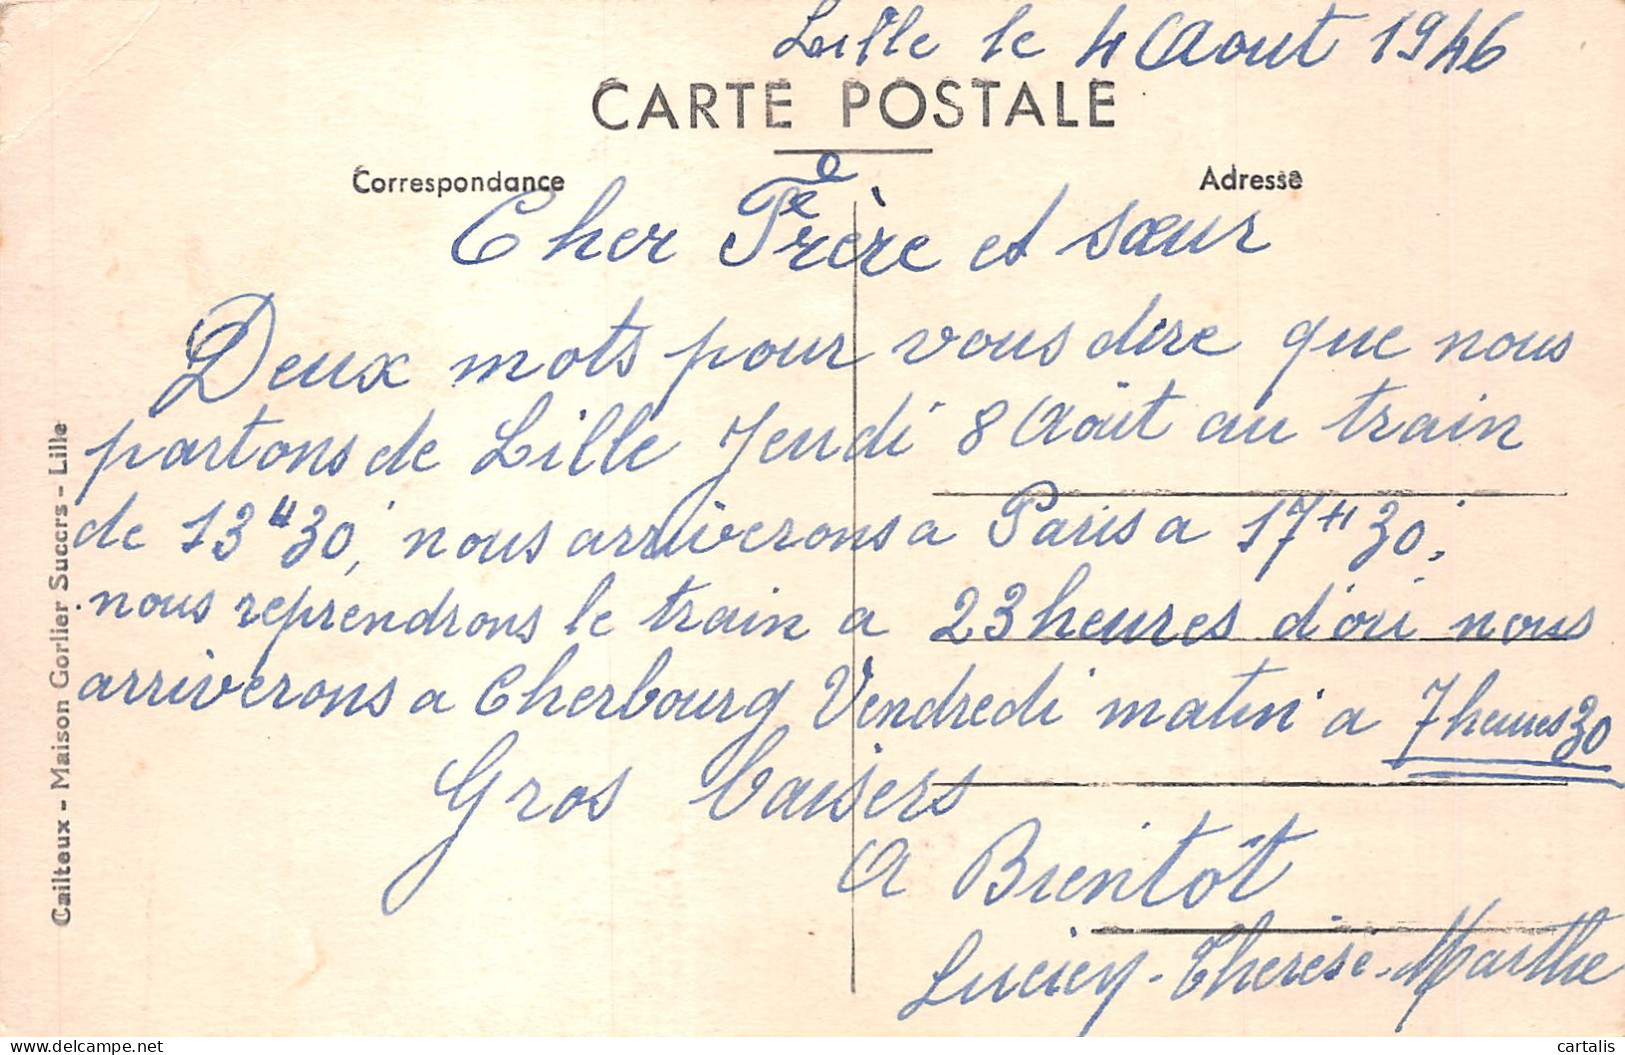 Lille le 4 Aout 1946
CARTE POSTALE
Correspondance
Adresse
Cher Frère et sœur
Deux mots pour vous dire que nous
partons de Lille Jeudi 8 Août au train
de 13H30, nous arriverons a Paris a 17H30,
nous reprendrons le train a 23 heures d'ou nous
arriverons a Cherbourg Vendredi matin a 7 heures 30
Gros baisers
A Bientôt
Lucien - Therese - Marthe
Cailteux - Maison Gorlier Succrs - Lille
delcampe.net
cartalis